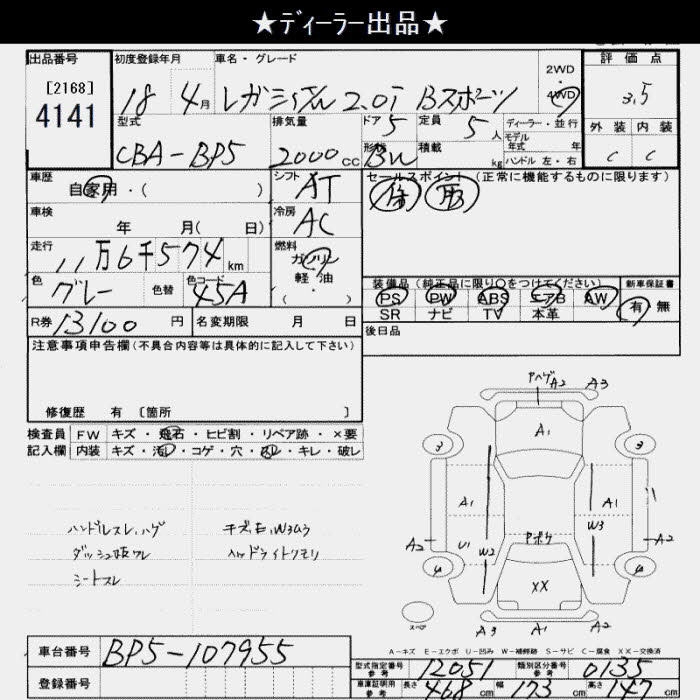 ★ディーラー出品★
出品番号 初度登録年月 車名・グレード 2WD 評価点
[2168] 18 4月 レガシィワゴン 2.0i Bスポーツ 4WD 3.5
4141 型式 排気量 ドア 5 定員 5人 ディーラー・並行 外装 内装
モデル 年式 年
CBA-BP5 2000cc 形状 BW 積載 kg ハンドル 左・右 C C
車歴 自家用・( ) シフト AT セールスポイント (正常に機能するものに限ります)
車検 年 月( 日) 冷房 AC
走行 11万6千574km 燃料 ガソリン
軽・油
・( )
色 グレー 色替 色コード 45A
装備品(純正品に限り○をつけてください) 新車保証書
PS PW ABS エアB AW 有・無
SR ナビ TV 本革
R券 13100円 名変期限 月 日 後日品
注意事項申告欄(不具合内容等は具体的に記入して下さい)
修復歴 有 [箇所 ]
検査員 FW キズ・飛石・ヒビ割・リペア跡・×要
記入欄 内装 キズ・汚レ・コゲ・穴・スレ・キレ・破レ
ハンドルスレ、ハゲ
シートスレ
ヘッドライトクモリ
Pハゲ A2 A3
A1
3 3
A1 A1
A2 U1 W2 Pボケ W3 A2
4 4
XX
スペア
A3 A1 A2
A-キズ E-エクボ U-凹み W-補修跡 S-サビ C-腐食 XX-交換済
車台番号 BP5-107955
登録番号
型式指定番号 参考 12051 類別区分番号 参考 0135
車庫証明用 参考 長さ 468cm 幅 173cm 高さ 147cm